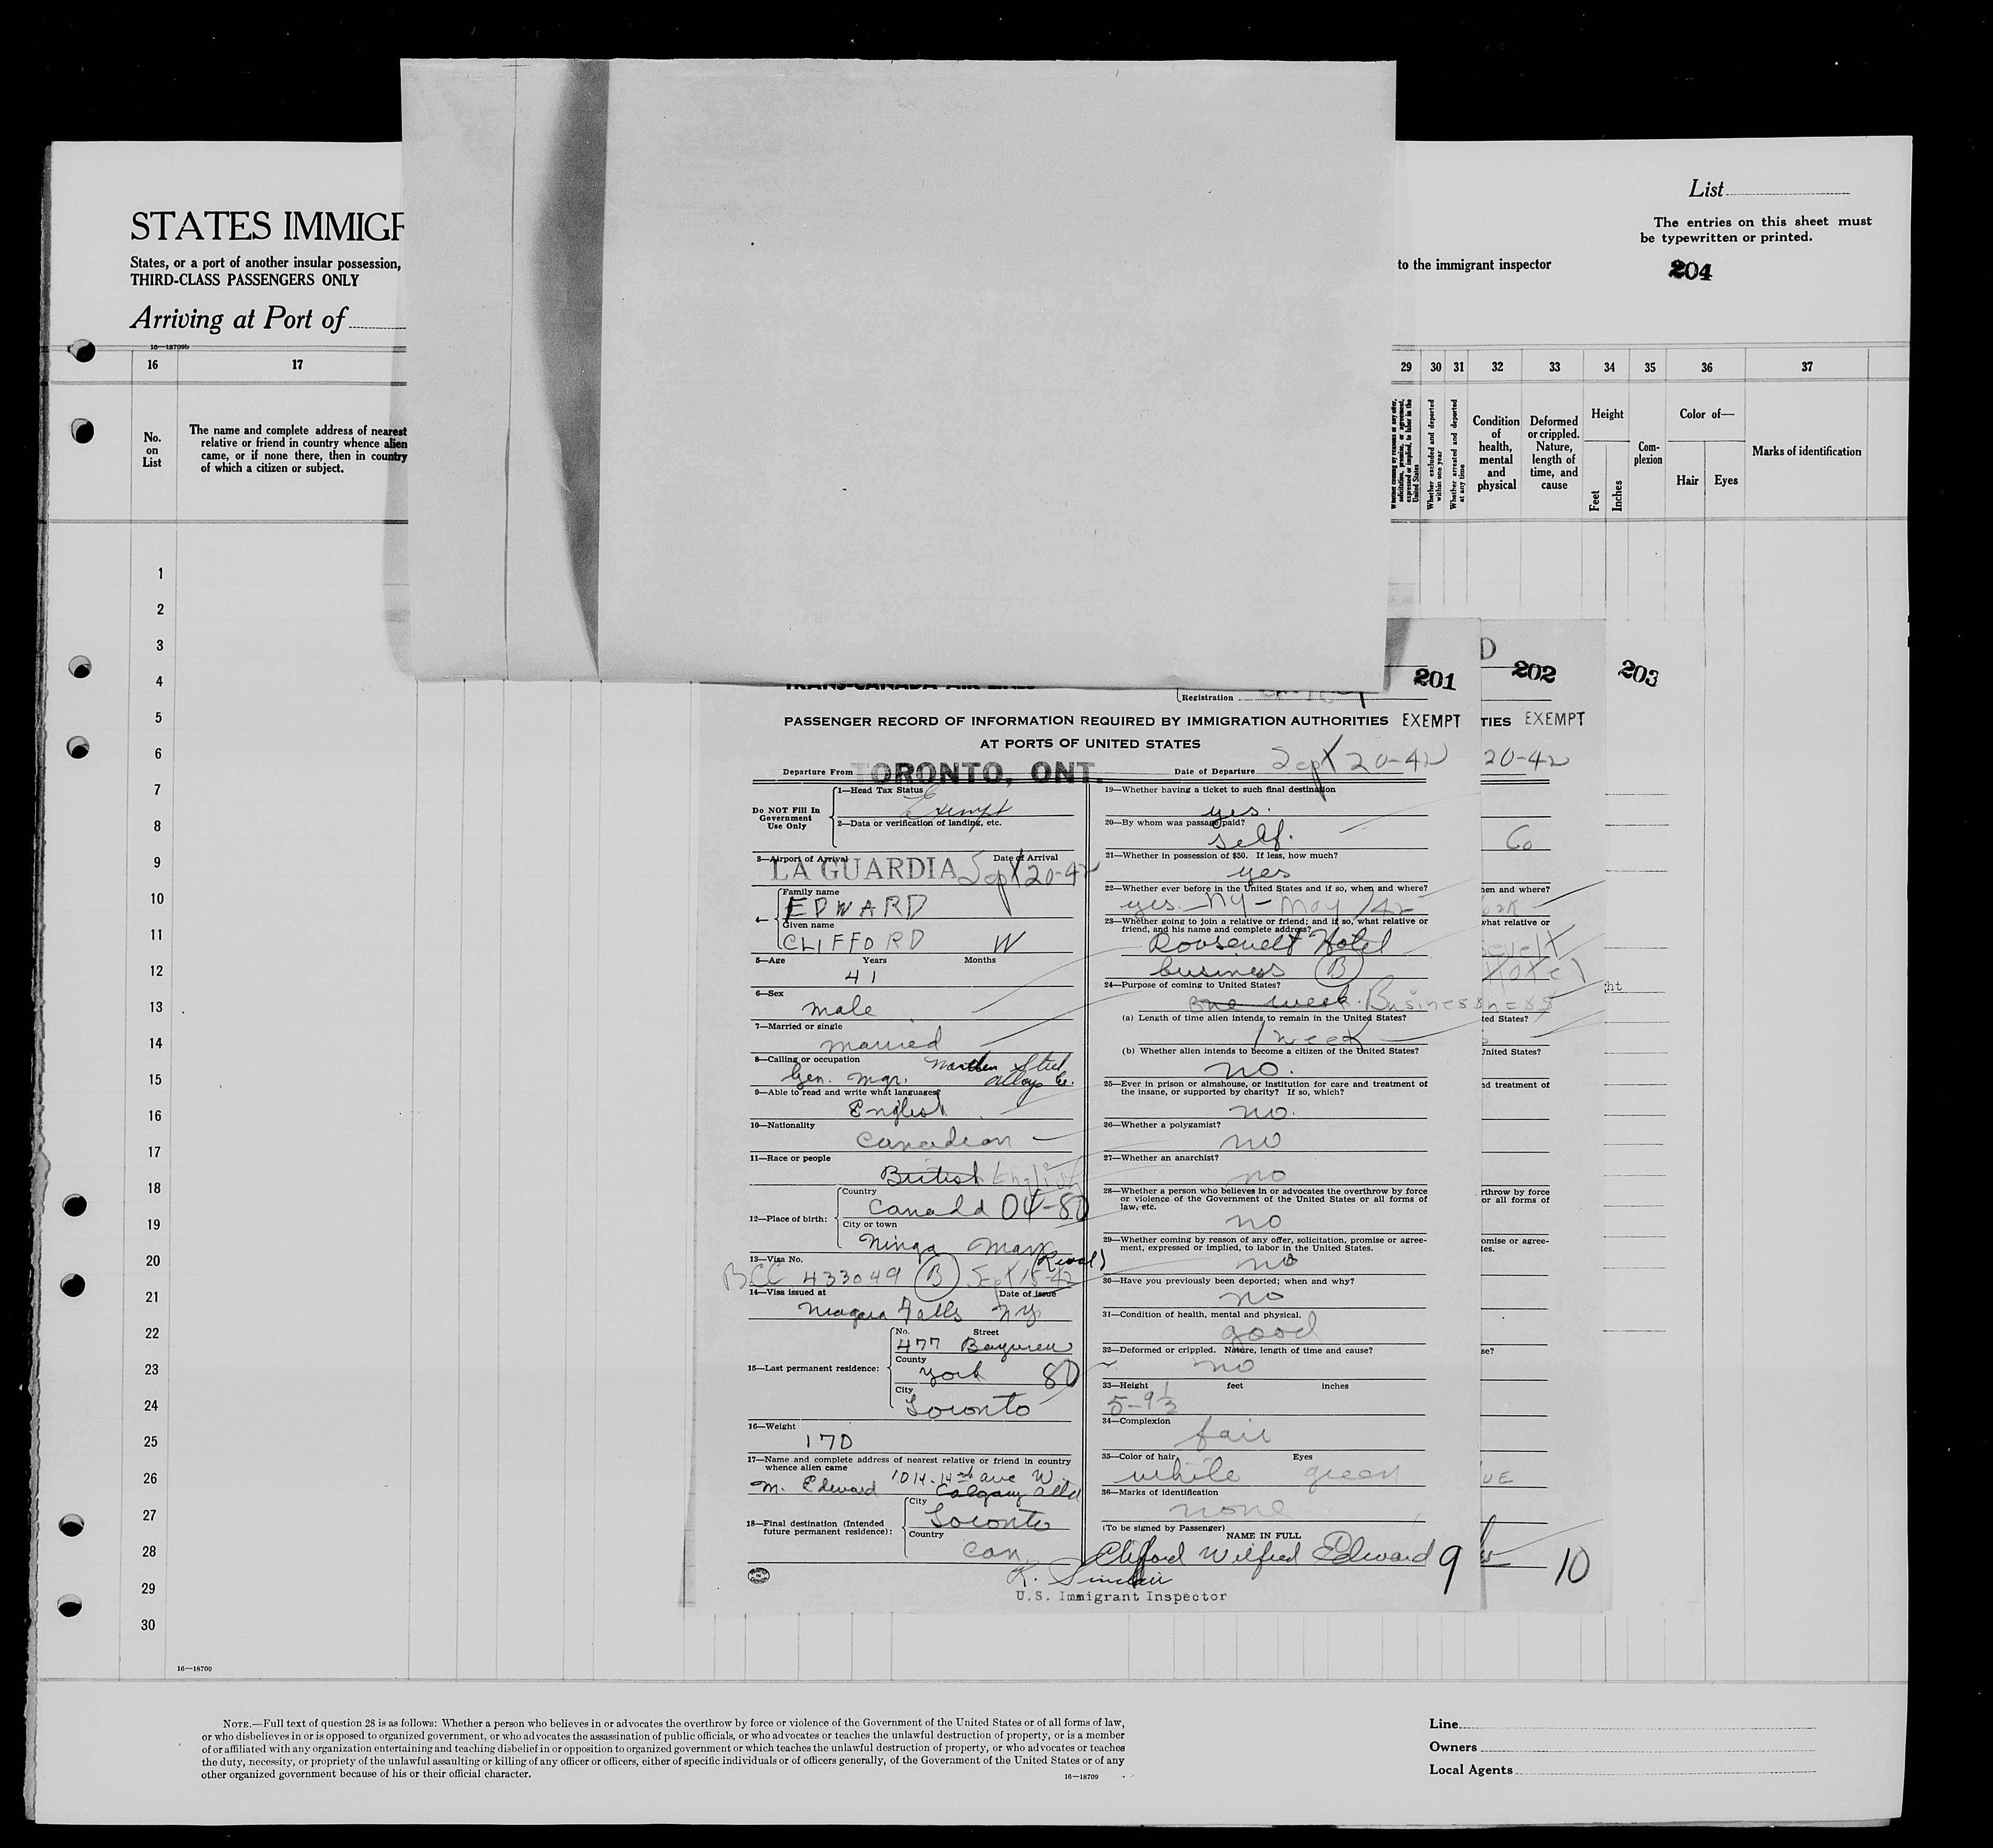 STATES IMMIGR
States, or a port of another insular possession,
THIRD-CLASS PASSENGERS ONLY
Arriving at Port of
16—18709b
to the immigrant inspector
List
The entries on this sheet must
be typewritten or printed.
204
16 17 29 30 31 32 33 34 35 36 37
No.
on
List
The name and complete address of nearest
relative or friend in country whence alien
came, or if none there, then in country
of which a citizen or subject.
Whether coming by reasons of any offer,
solicitation, promise, or agreement,
expressed or implied, to labor in the
United States
Whether excluded and deported
within one year
Whether arrested and deported
at any time
Condition
of
health,
mental
and
physical
Deformed
or crippled.
Nature,
length of
time, and
cause
Height
Feet
Inches
Com-
plexion
Color of—
Hair
Eyes
Marks of identification
1
2
3
4
5
6
7
8
9
10
11
12
13
14
15
16
17
18
19
20
21
22
23
24
25
26
27
28
29
30
TRANS-CANADA AIR LINES
Registration
201
PASSENGER RECORD OF INFORMATION REQUIRED BY IMMIGRATION AUTHORITIES EXEMPT
AT PORTS OF UNITED STATES
Departure From TORONTO, ONT.
Date of Departure Sept 20-42
Do NOT Fill In
Government
Use Only
1—Head Tax Status
Exempt
2—Data or verification of landing, etc.
3—Airport of Arrival Date of Arrival
LA GUARDIA Sept 20-42
4—
Family name
EDWARD
Given name
CLIFFORD W
5—Age Years Months
41
6—Sex
male
7—Married or single
married
8—Calling or occupation
Gen. Mgr. Steel
alloys Co.
9—Able to read and write what languages?
English
10—Nationality
Canadian
11—Race or people
British English
12—Place of birth:
Country
Canada 04-80
City or town
Ninga Man
13—Visa No. (Reval)
BCC 433049 (B) Sept 15-42
14—Visa issued at Date of issue
Niagara Falls NY
15—Last permanent residence:
No. Street
477 Bayview
County
York 80
City
Toronto
16—Weight
170
17—Name and complete address of nearest relative or friend in country
whence alien came
1014-14th ave W.
M. Edward Calgary Alta
18—Final destination (Intended
future permanent residence):
City
Toronto
Country
Can
19—Whether having a ticket to such final destination
yes.
20—By whom was passage paid?
self.
21—Whether in possession of $50. If less, how much?
yes
22—Whether ever before in the United States and if so, when and where?
yes. NY - May /42
23—Whether going to join a relative or friend; and if so, what relative or
friend, and his name and complete address?
Roosevelt Hotel
business (B)
24—Purpose of coming to United States?
one week. Business
(a) Length of time alien intends to remain in the United States?
1 week
(b) Whether alien intends to become a citizen of the United States?
no.
25—Ever in prison or almshouse, or institution for care and treatment of
the insane, or supported by charity? If so, which?
no.
26—Whether a polygamist?
no
27—Whether an anarchist?
no
28—Whether a person who believes in or advocates the overthrow by force
or violence of the Government of the United States or all forms of
law, etc.
no
29—Whether coming by reason of any offer, solicitation, promise or agree-
ment, expressed or implied, to labor in the United States.
no
30—Have you previously been deported; when and why?
no
31—Condition of health, mental and physical.
good
32—Deformed or crippled. Nature, length of time and cause?
no
33—Height feet inches
5-9½
34—Complexion
fair
35—Color of hair Eyes
white green
36—Marks of identification
none
(To be signed by Passenger)
NAME IN FULL
Clifford Wilfred Edward 9
K. Sinclair
U.S. Immigrant Inspector
D
202
TIES EXEMPT
20-42
Co
hen and where?
what relative or
sevelt
Hotel
ness
ted States?
United States?
nd treatment of
rthrow by force
or all forms of
omise or agree-
tes.
se?
UE
10
203
ht
16—18709
NOTE.—Full text of question 28 is as follows: Whether a person who believes in or advocates the overthrow by force or violence of the Government of the United States or of all forms of law,
or who disbelieves in or is opposed to organized government, or who advocates the assassination of public officials, or who advocates or teaches the unlawful destruction of property, or is a member
of or affiliated with any organization entertaining and teaching disbelief in or opposition to organized government or which teaches the unlawful destruction of property, or who advocates or teaches
the duty, necessity, or propriety of the unlawful assaulting or killing of any officer or officers, either of specific individuals or of officers generally, of the Government of the United States or of any
other organized government because of his or their official character.
16—18709
Line
Owners
Local Agents